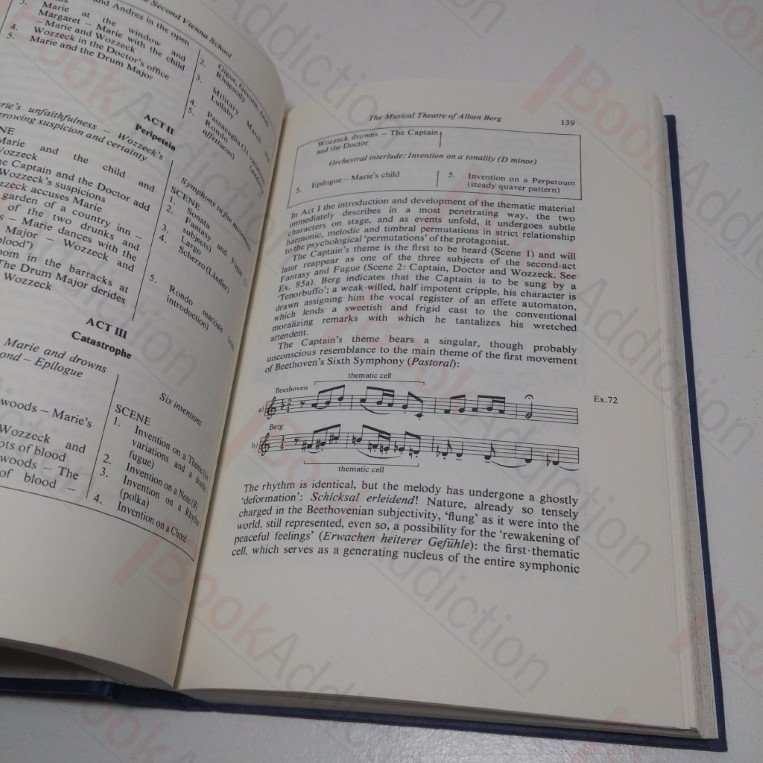 Second Vienna School
and Andres in the open
3. Marie at the window and
Margaret – Marie with the child
– Marie and Wozzeck
4. Wozzeck in the Doctor's office
5. Marie and the Drum Major
2. Rhapsody
3. Military March and
Lullaby
4. Passacaglia (21
5. Rondo
ACT II
Peripeteia
Marie's unfaithfulness – Wozzeck's
growing suspicion and certainty
Symphony in five movements
Marie and the child and
Wozzeck
The Captain and the Doctor add
Wozzeck's suspicions
Wozzeck accuses Marie
garden of a country inn –
of the two drunks and
Marie dances with the
Major – Wozzeck and
blood')
room in the barracks at
The Drum Major derides
Wozzeck
SCENE
1. Sonata
2. Fantasy and Fugue (3
subjects)
3. Largo
4. Scherzo (Ländler)
5. Rondo marziale (with
introduction)
ACT III
Catastrophe
Marie and drowns
– Epilogue
Six inventions
woods – Marie's
Wozzeck and
of blood
woods – The
of blood –
SCENE
1. Invention on a Theme (
variations and a double
fugue)
2. Invention on a Note (B)
3. Invention on a Rhythm
(polka)
4. Invention on a Chord
The Musical Theatre of Alban Berg 139
Wozzeck drowns – The Captain
and the Doctor
Orchestral interlude: Invention on a tonality (D minor)
5. Epilogue – Marie's child
5. Invention on a Perpetuum
(steady quaver pattern)
In Act I the introduction and development of the thematic material
immediately describes in a most penetrating way, the two
characters on stage, and as events unfold, it undergoes subtle
harmonic, melodic and timbral permutations in strict relationship
to the psychological 'permutations' of the protagonist.
The Captain's theme is the first to be heard (Scene 1) and will
later reappear as one of the three subjects of the second-act
Fantasy and Fugue (Scene 2: Captain, Doctor and Wozzeck. See
Ex. 85a). Berg indicates that the Captain is to be sung by a
'Tenorbuffo'; a weak-willed, half impotent cripple, his character is
drawn assigning him the vocal register of an effete automaton,
which lends a sweetish and frigid cast to the conventional
moralizing remarks with which he tantalizes his wretched
attendent.
The Captain's theme bears a singular, though probably
unconscious resemblance to the main theme of the first movement
of Beethoven's Sixth Symphony (Pastoral):
thematic cell
Beethoven
Ex.72
a)
Berg
b)
thematic cell
The rhythm is identical, but the melody has undergone a ghostly
'deformation': Schicksal erleidend! Nature, already so tensely
charged in the Beethovenian subjectivity, 'flung' as it were into the
world, still represented, even so, a possibility for the 'rewakening of
peaceful feelings' (Erwachen heiterer Gefühle); the first thematic
cell, which serves as a generating nucleus of the entire symphonic
BookAddiction